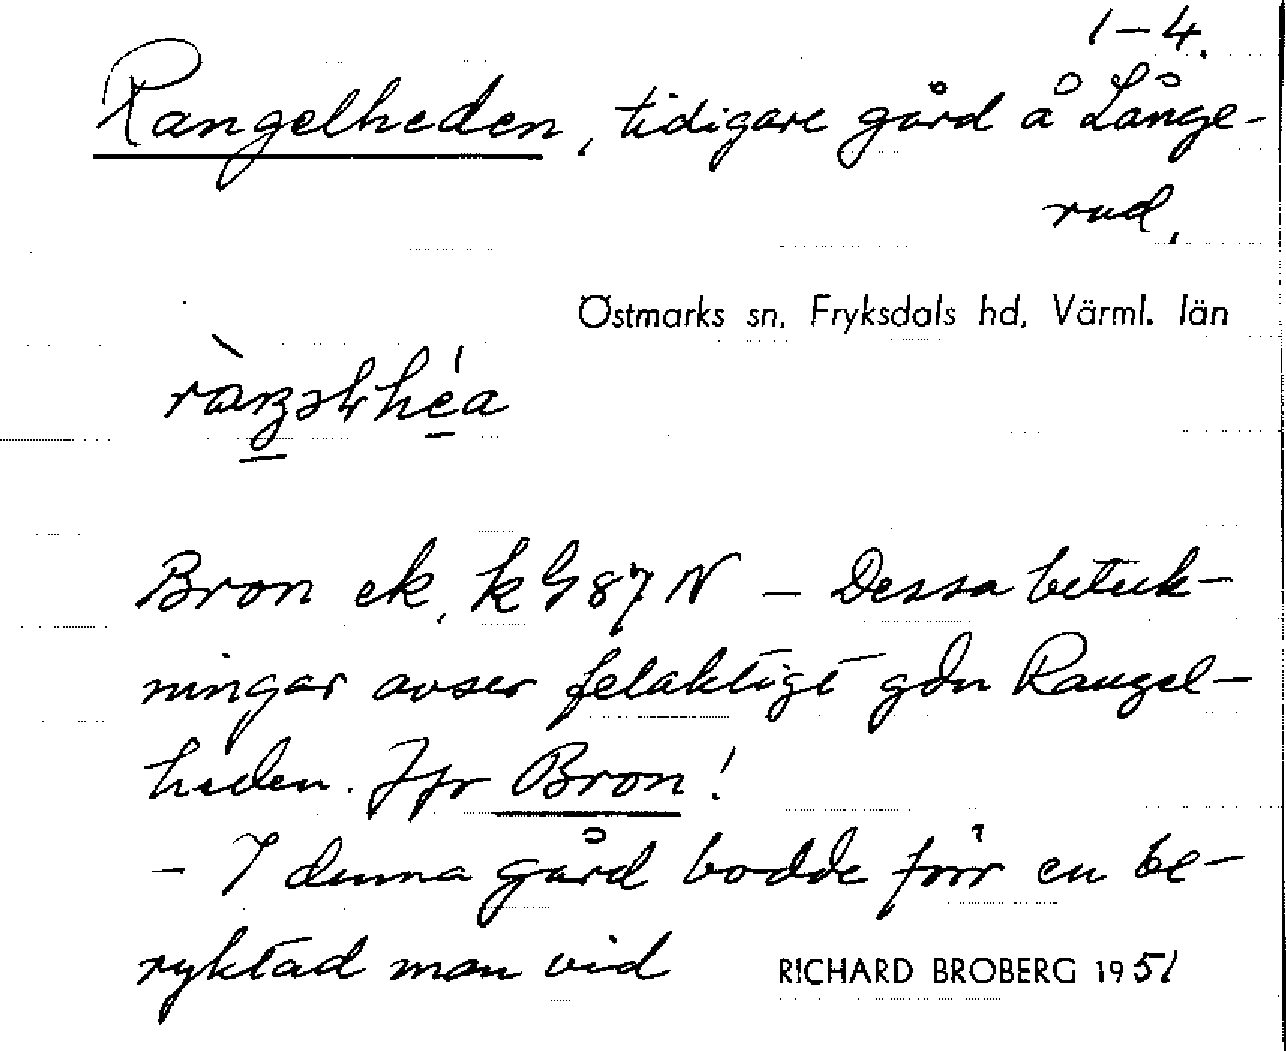 1–4.
Rangelheden, tidigare gård å Långe-
rud.
Östmarks sn, Fryksdals hd, Värml. län
Bron ek, k G 87 N – Dessa beteck-
ningar avser felaktigt gdn Rangel-
heden. Jfr Bron!
– I denna gård bodde förr en be-
ryktad man vid
RICHARD BROBERG 1951